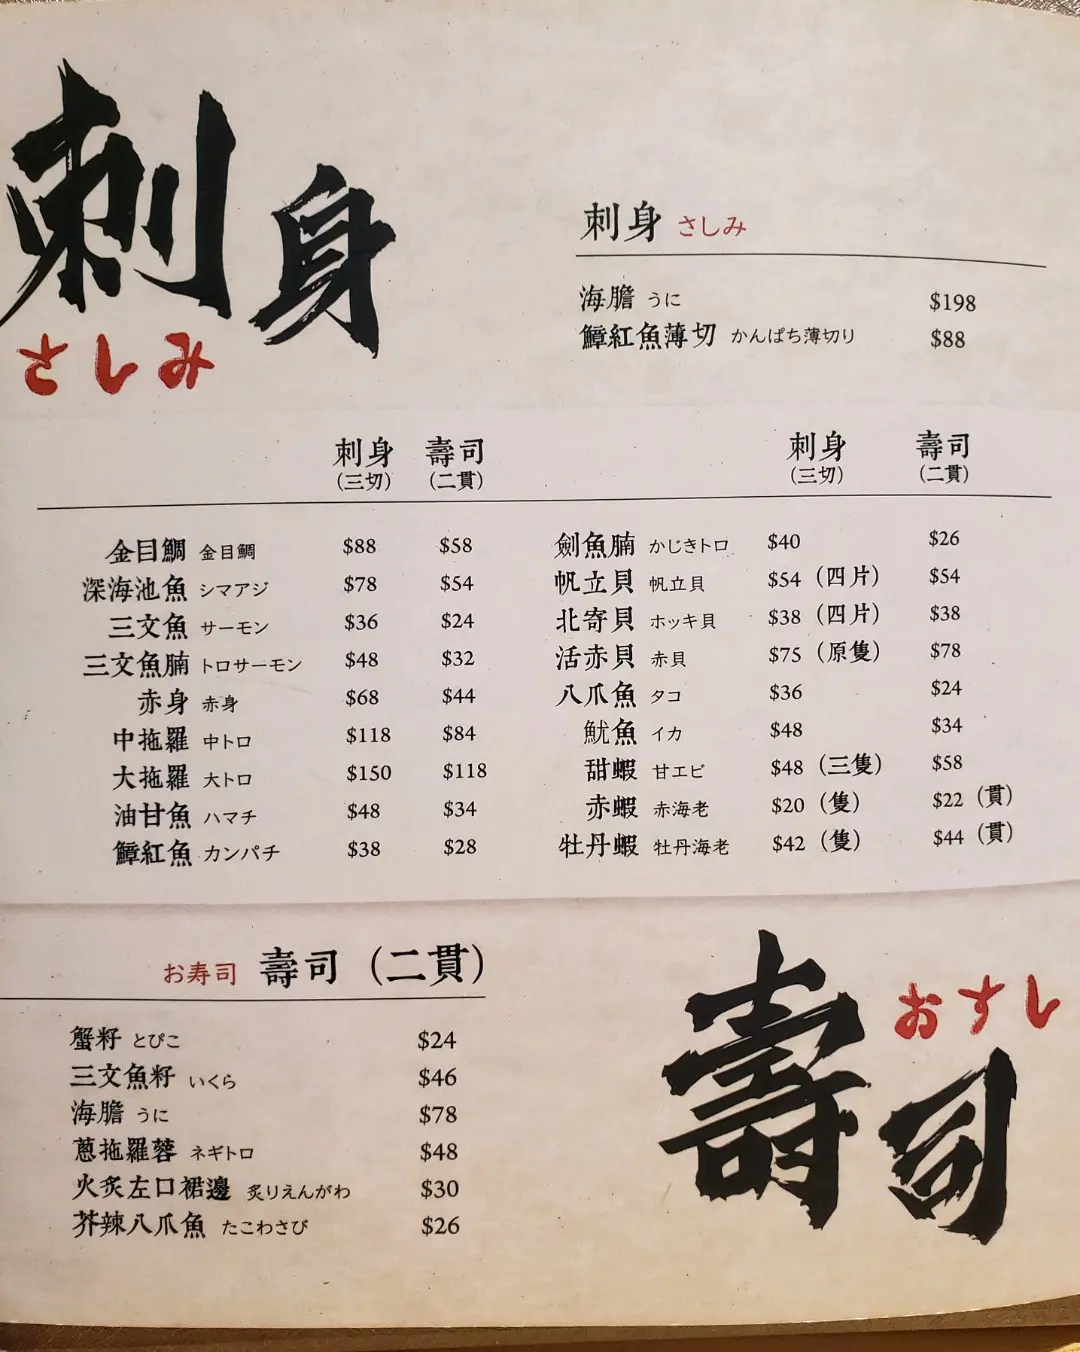 刺身
さしみ
刺身 さしみ
海膽 うに $198
鱆紅魚薄切 かんぱち薄切り $88
刺身 壽司
(三切) (二貫)
金目鯛 金目鯛 $88 $58
深海池魚 シマアジ $78 $54
三文魚 サーモン $36 $24
三文魚腩 トロサーモン $48 $32
赤身 赤身 $68 $44
中拖羅 中トロ $118 $84
大拖羅 大トロ $150 $118
油甘魚 ハマチ $48 $34
鱆紅魚 カンパチ $38 $28
刺身 壽司
(三切) (二貫)
劍魚腩 かじきトロ $40 $26
帆立貝 帆立貝 $54 (四片) $54
北寄貝 ホッキ貝 $38 (四片) $38
活赤貝 赤貝 $75 (原隻) $78
八爪魚 タコ $36 $24
魷魚 イカ $48 $34
甜蝦 甘エビ $48 (三隻) $58
赤蝦 赤海老 $20 (隻) $22 (貫)
牡丹蝦 牡丹海老 $42 (隻) $44 (貫)
お寿司 壽司 (二貫)
蟹籽 とぴこ $24
三文魚籽 いくら $46
海膽 うに $78
蔥拖羅蓉 ネギトロ $48
火炙左口裙邊 炙りえんがわ $30
芥辣八爪魚 たこわさび $26
壽司
おすし